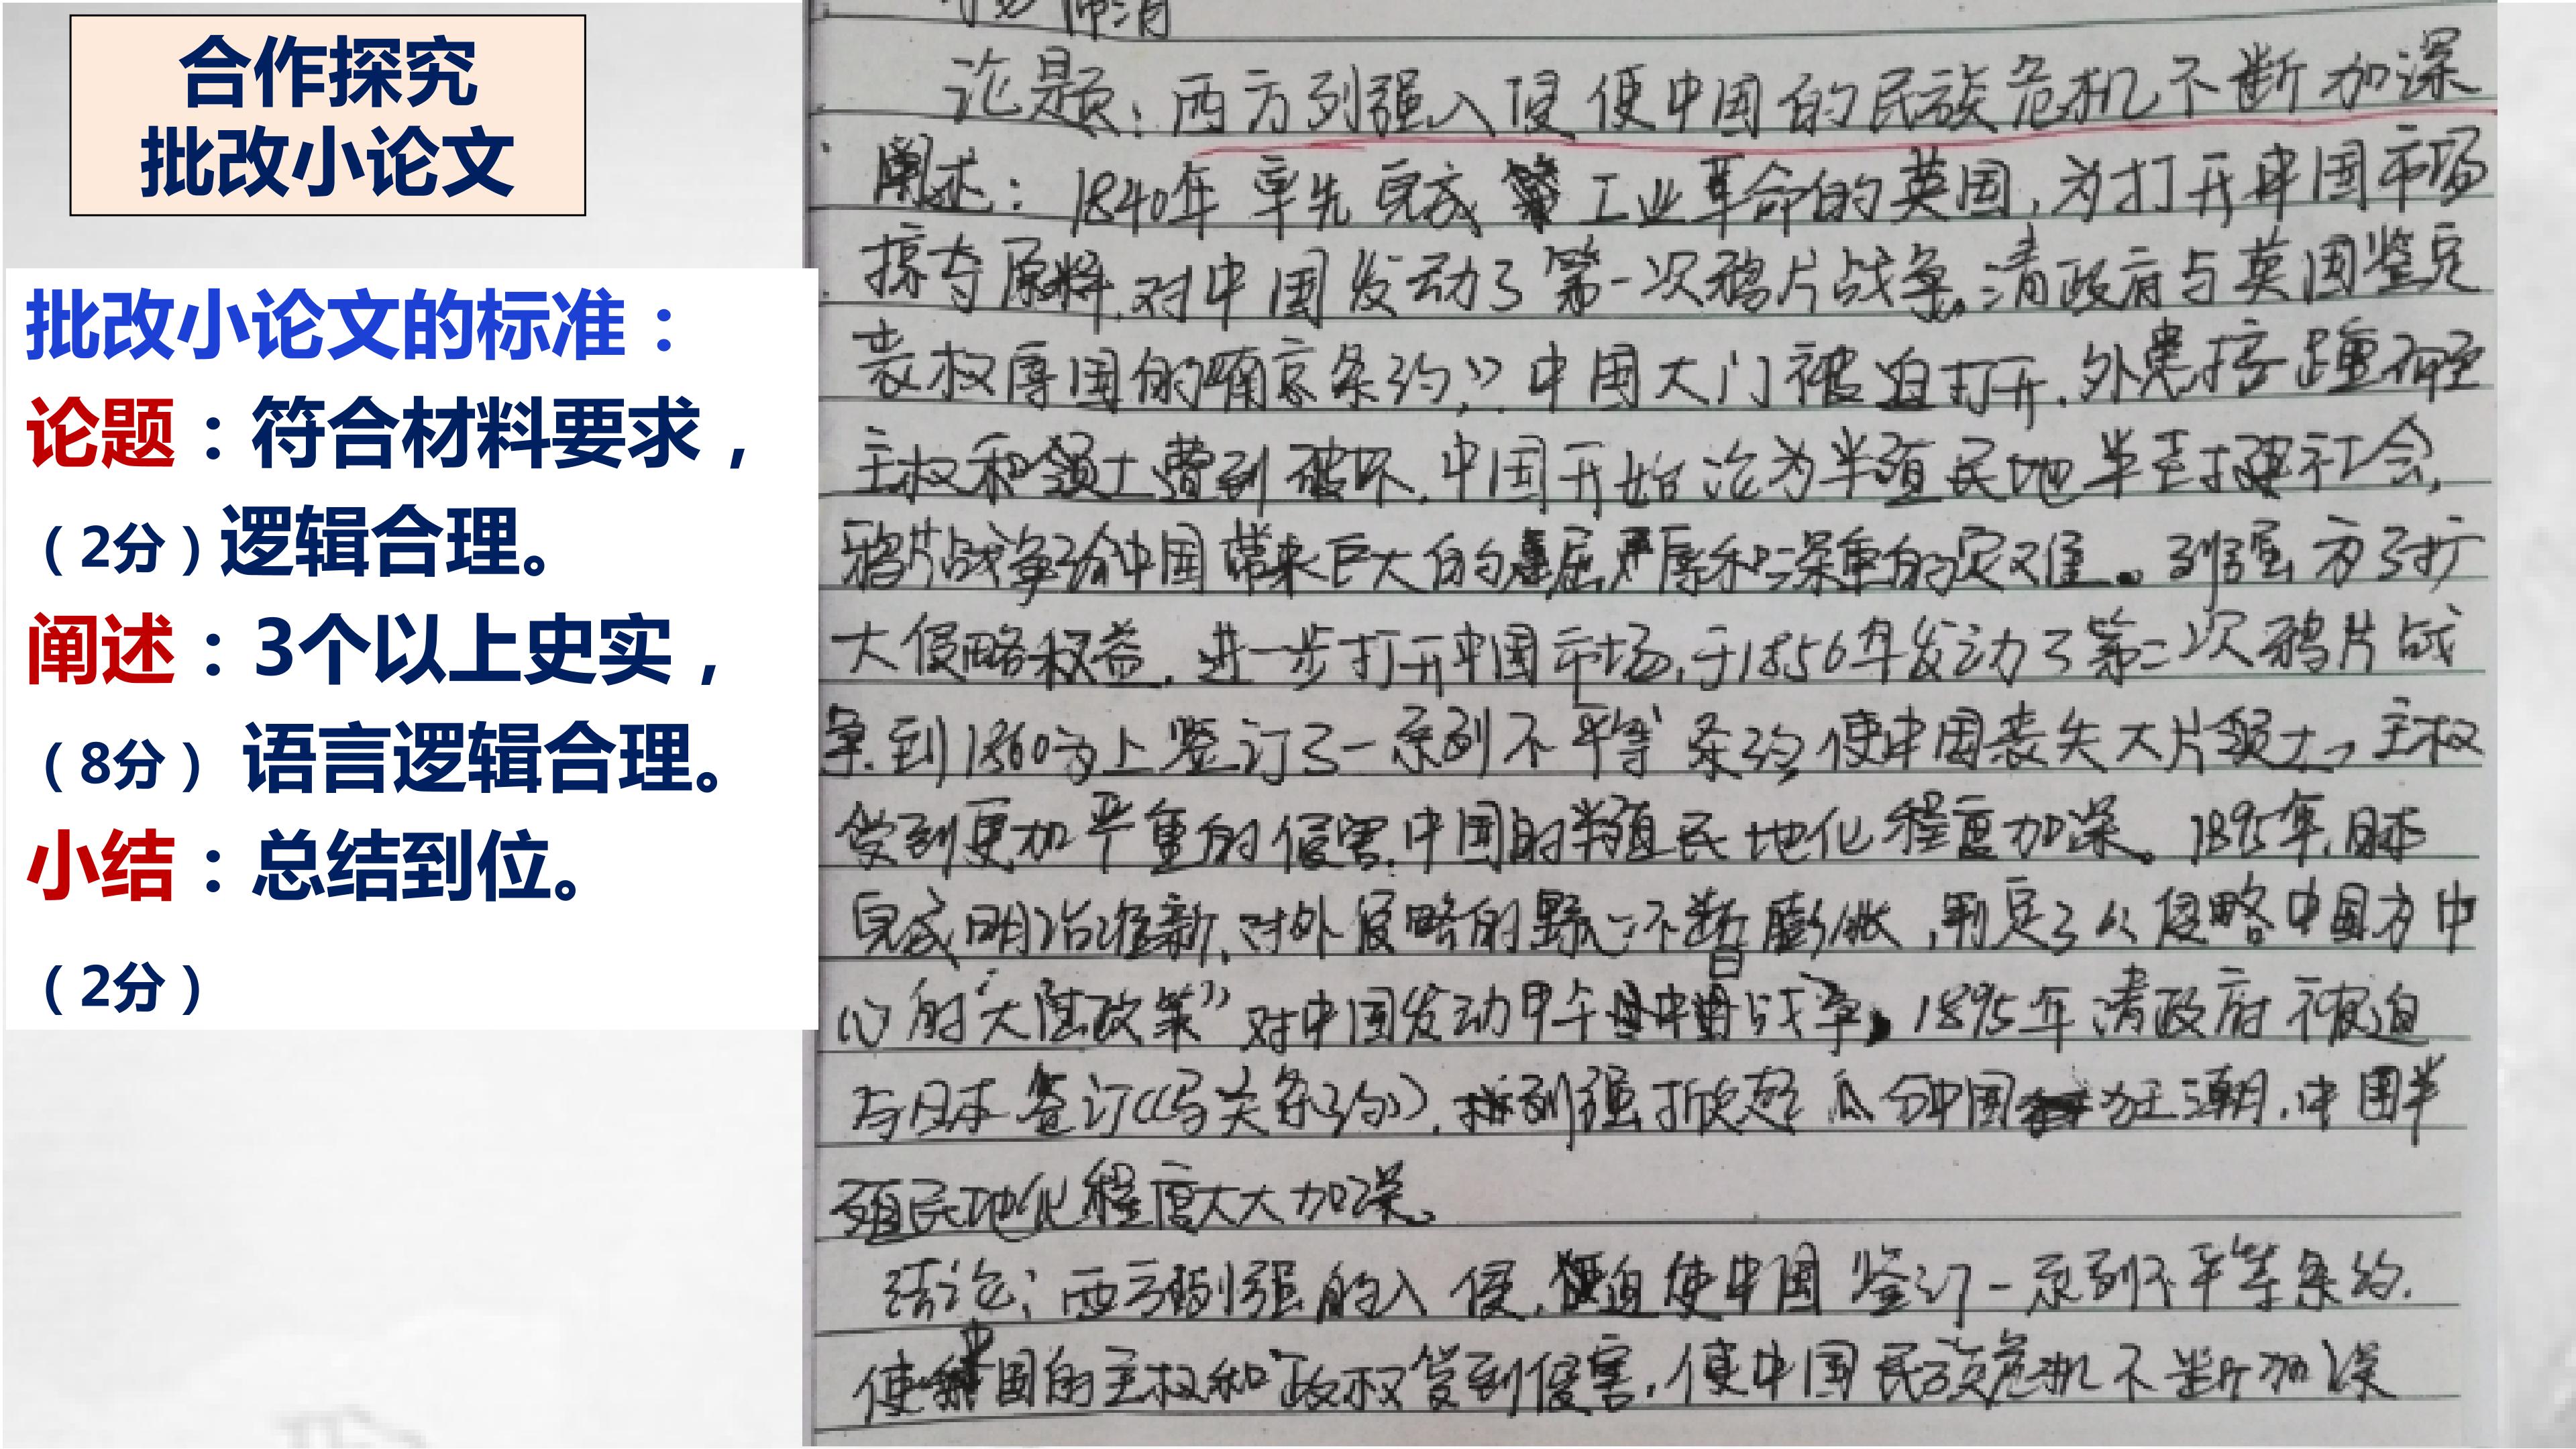 合作探究
批改小论文
批改小论文的标准：
论题：符合材料要求，
（2分）逻辑合理。
阐述：3个以上史实，
（8分）语言逻辑合理。
小结：总结到位。
（2分）
论题：西方列强入侵使中国的民族危机不断加深
阐述：1840年率先完成工业革命的英国，为打开中国市场
掠夺原料，对中国发动了第一次鸦片战争。清政府与英国鉴定
丧权辱国的《南京条约》，中国大门被迫打开，外患接踵而至
主权和领土遭到破坏，中国开始沦为半殖民地半封建社会，
鸦片战争给中国带来巨大的屈辱和深重的灾难。列强为了扩
大侵略权益，进一步打开中国市场，于1856年发动了第二次鸦片战
争，到1860为止鉴订了一系列不平等条约使中国丧失大片领土，主权
受到更加严重的侵害，中国的半殖民地化程度加深。1895年，日本
完成明治维新，对外侵略的野心不断膨胀，制定了以侵略中国为中
心的“大陆政策”对中国发动甲午中日战争，1895年清政府被迫
与日本签订《马关条约》，列强掀起瓜分中国狂潮，中国半
殖民地化程度大大加深。
结论：西方列强的入侵，迫使中国鉴订一系列不平等条约，
使中国的主权和政权受到侵害，使中国民族危机不断加深